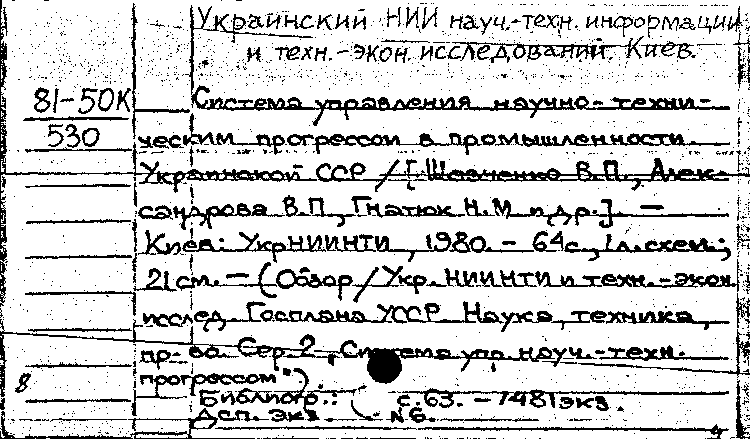 Украинский НИИ науч.-техн. информации
и техн.-экон. исследований. Киев.
81-50К
530
Система управления научно-техни-
ческим прогрессом в промышленности
Украинской ССР / [Шевченко В.П., Алек-
сандрова В.П., Гнатюк Н.М. и др.]. —
Киев: УкрНИИНТИ, 1980. - 64с., 1л.схем.;
21см. — (Обзор / Укр. НИИНТИ и техн.-экон.
исслед. Госплана УССР. Наука, техника,
пр-во. Сер. 2, "Система упр. науч.-техн.
прогрессом").
8
Библиогр.: с.63. - 1481экз.
Дсп. экз. N6.